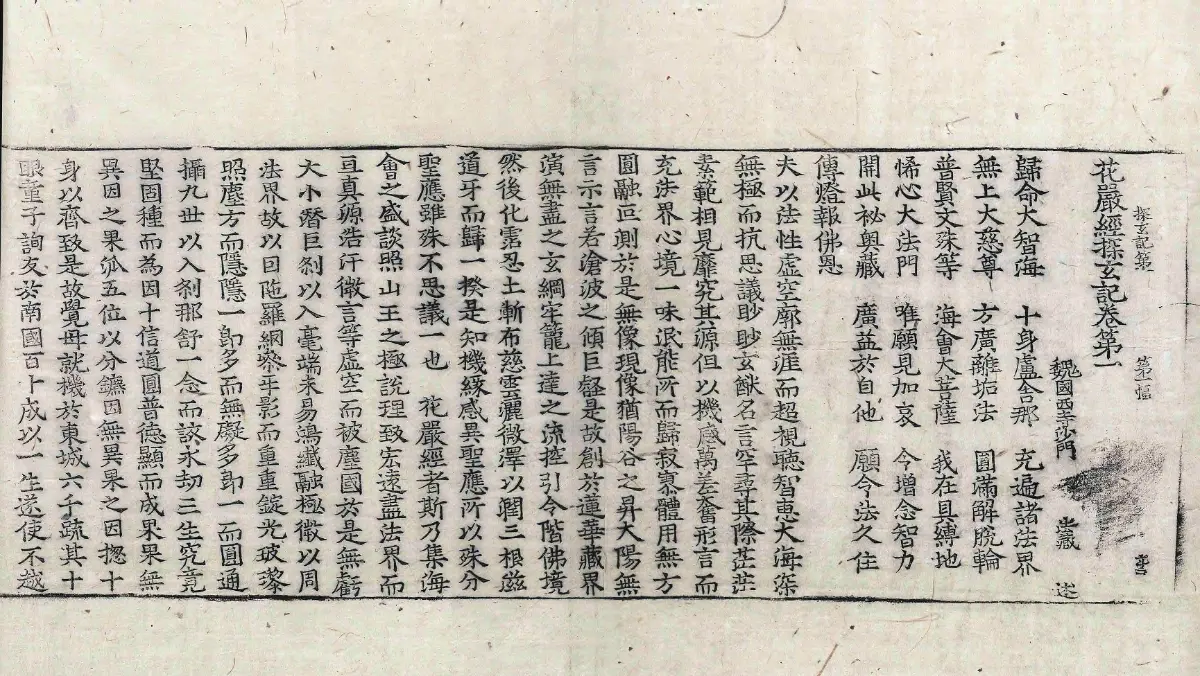 探玄記第一 第一幅
花嚴經探玄記卷第一
魏國西寺沙門 法藏 述
歸命大智海 十身盧舍那 充遍諸法界
無上大慈尊 方廣離垢法 圓滿解脫輪
普賢文殊等 海會大菩薩 我在具縛地
悕心大法門 唯願見加哀 令增念智力
開此祕奧藏 廣益於自他 願令法久住
傳燈報佛恩
夫以法性虛空廓無涯而超視聽智惠大海深
無極而抗思議眇眇玄猷名言罕尋其際茫茫
素範相見靡究其源但以機感萬差奮形言而
充法界心境一味泯能所而歸寂寥體用無方
圓融叵測於是無像現像猶陽谷之昇大陽無
言示言若滄波之傾巨壑是故創於蓮華藏界
演無盡之玄綱牢籠上達之流控引令階佛境
然後化霑忍土漸布慈雲灑微澤以潤三根茲
道牙而歸一揆是知機緣感異聖應所以殊分
聖應雖殊不思議一也 花嚴經者斯乃集海
會之盛談照山王之極說理致宏遠盡法界而
亘真源浩汗微言等虛空而被塵國於是無虧
大小潛巨刹以入毫端未易鴻纖融極微以周
法界故以因陁羅網參互影而重重錠光玻瓈
照塵方而隱隱一即多而無礙多即一而圓通
攝九世以入刹那舒一念而該永劫三生究竟
堅固種而為因十信道圓普德顯而成果果無
異因之果派五位以分鑣因無異果之因揔十
身以齊致是故覺母就機於東城六千疏其十
眼童子詢友於南國百十成以一生遂使不越